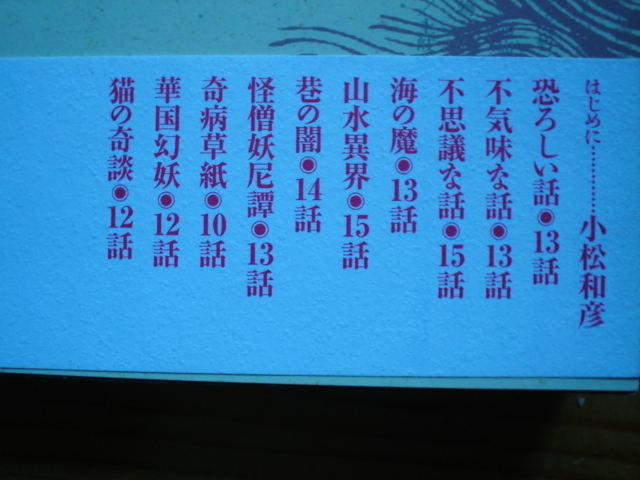 はじめに…………小松和彦
恐ろしい話◉13話
不気味な話◉13話
不思議な話◉15話
海の魔◉13話
山水異界◉15話
巷の闇◉14話
怪僧妖尼譚◉13話
奇病草紙◉10話
華国幻妖◉12話
猫の奇談◉12話